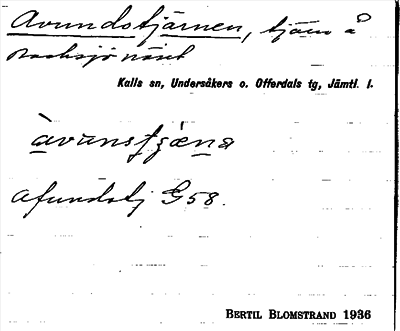 Avundstjärnen, tjärn å
Backsjönäset
Kalls sn, Undersåkers o. Offerdals tg, Jämtl. l.
Afundstj G58.
BERTIL BLOMSTRAND 1936